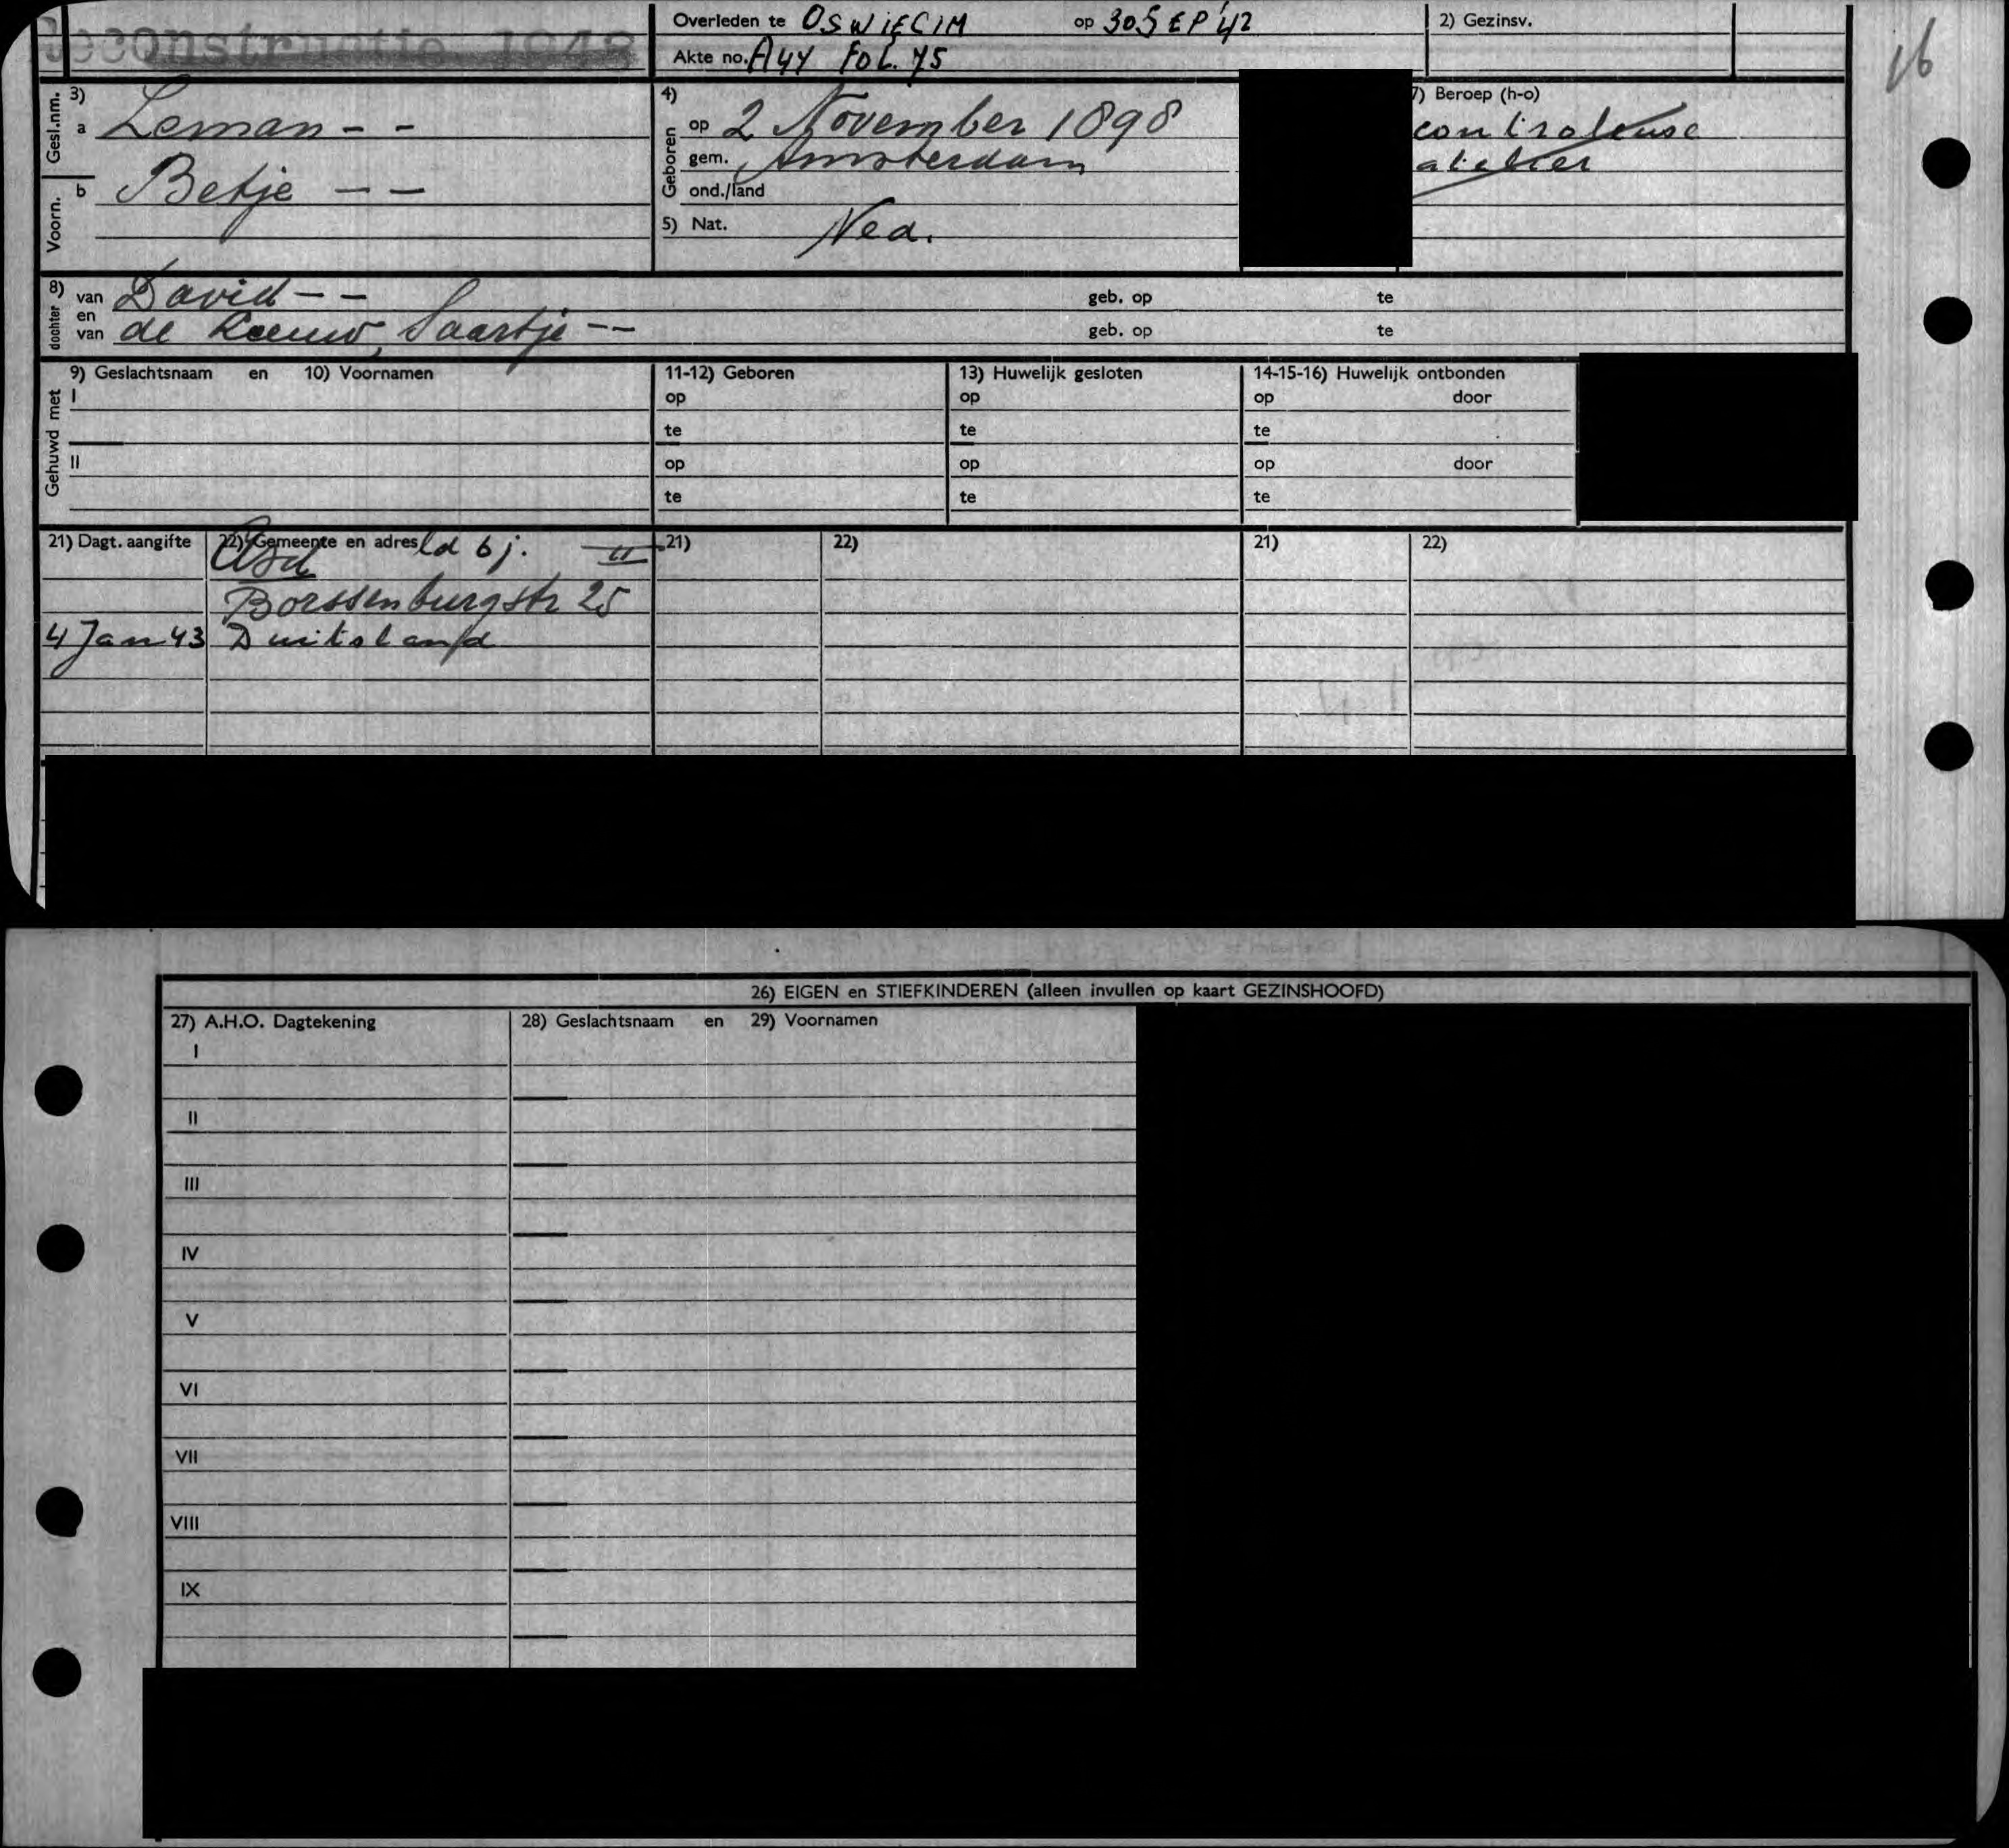 Reconstructie 1948
Overleden te OSWIECIM op 30 SEP '42
Akte no. A44 FOL. 75
2) Gezinsv.
16
Gesl.nm. 3)
a Leman - -
Voorn. b Betje - -
4)
Geboren op 2 November 1898
gem. Amsterdam
ond./land
5) Nat. Ned.
7) Beroep (h-o)
controleuse
atelier
dochter 8) van David - - geb. op te
en
van de Leeuw, Saartje - - geb. op te
Gehuwd met
9) Geslachtsnaam en 10) Voornamen 11-12) Geboren 13) Huwelijk gesloten 14-15-16) Huwelijk ontbonden
I op op op door
te te te
II op op op door
te te te
21) Dagt. aangifte 22) Gemeente en adres 21) 22) 21) 22)
Asd ld bj. II
Borssenburgstr 25
4 Jan 43 Duitsland
26) EIGEN en STIEFKINDEREN (alleen invullen op kaart GEZINSHOOFD)
27) A.H.O. Dagtekening 28) Geslachtsnaam en 29) Voornamen
I
II
III
IV
V
VI
VII
VIII
IX